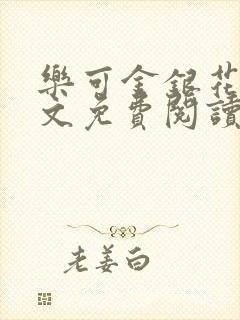 樂可金銀花
文免費閱讀
老姜白